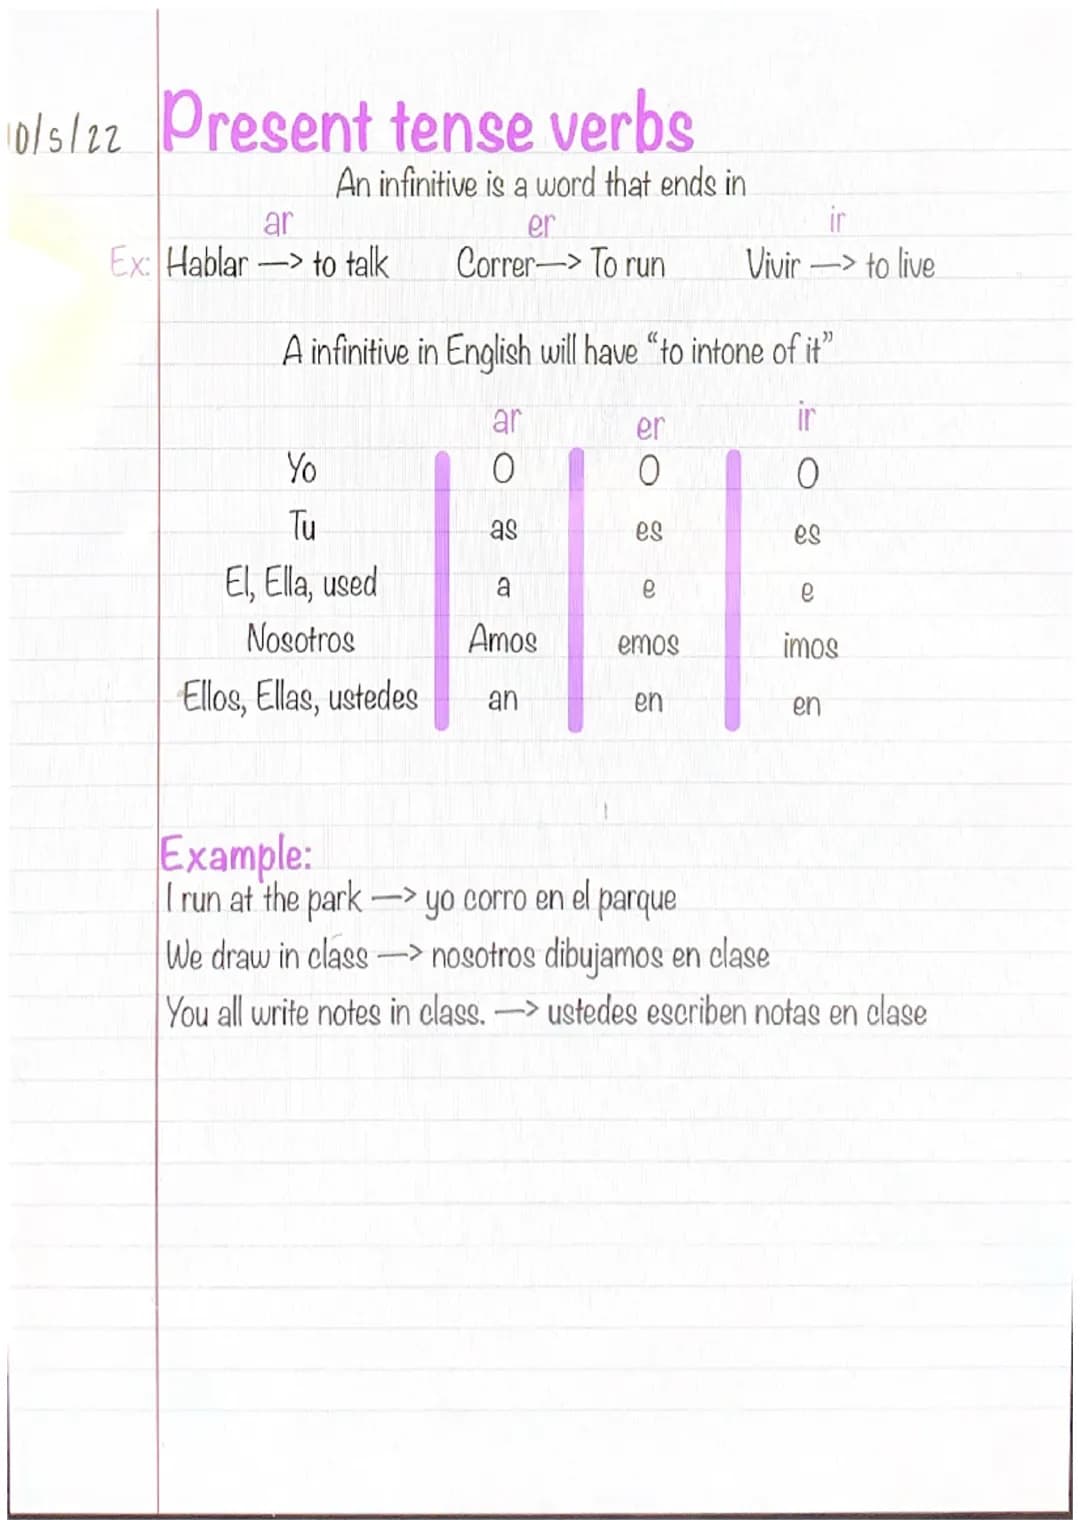 10/5/22 Present tense verbs
An infinitive is a word that ends in
ar er ir
Ex: Hablar —> to talk Correr—> To run Vivir —> to live
A infinitive in English will have “to intone of it”
ar er ir
Yo O O O
Tu as es es
El, Ella, used a e e
Nosotros Amos emos imos
Ellos, Ellas, ustedes an en en
Example:
I run at the park —> yo corro en el parque
We draw in class —> nosotros dibujamos en clase
You all write notes in class. —> ustedes escriben notas en clase